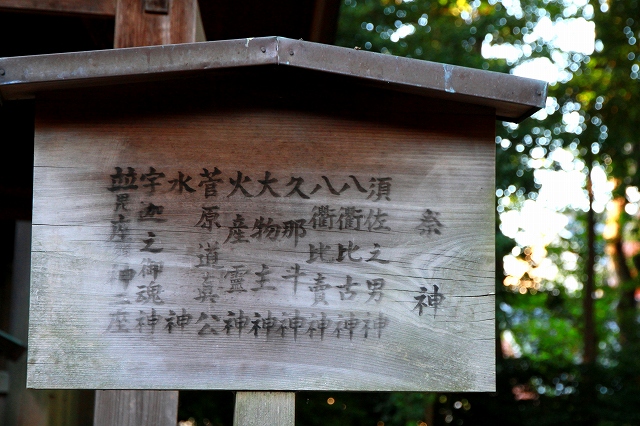 祭神
須佐之男神
八衢比古神
八衢比賣神
久那斗神
大物主神
火産靈神
菅原道真公
水神
宇迦之御魂神
並 座 神二座